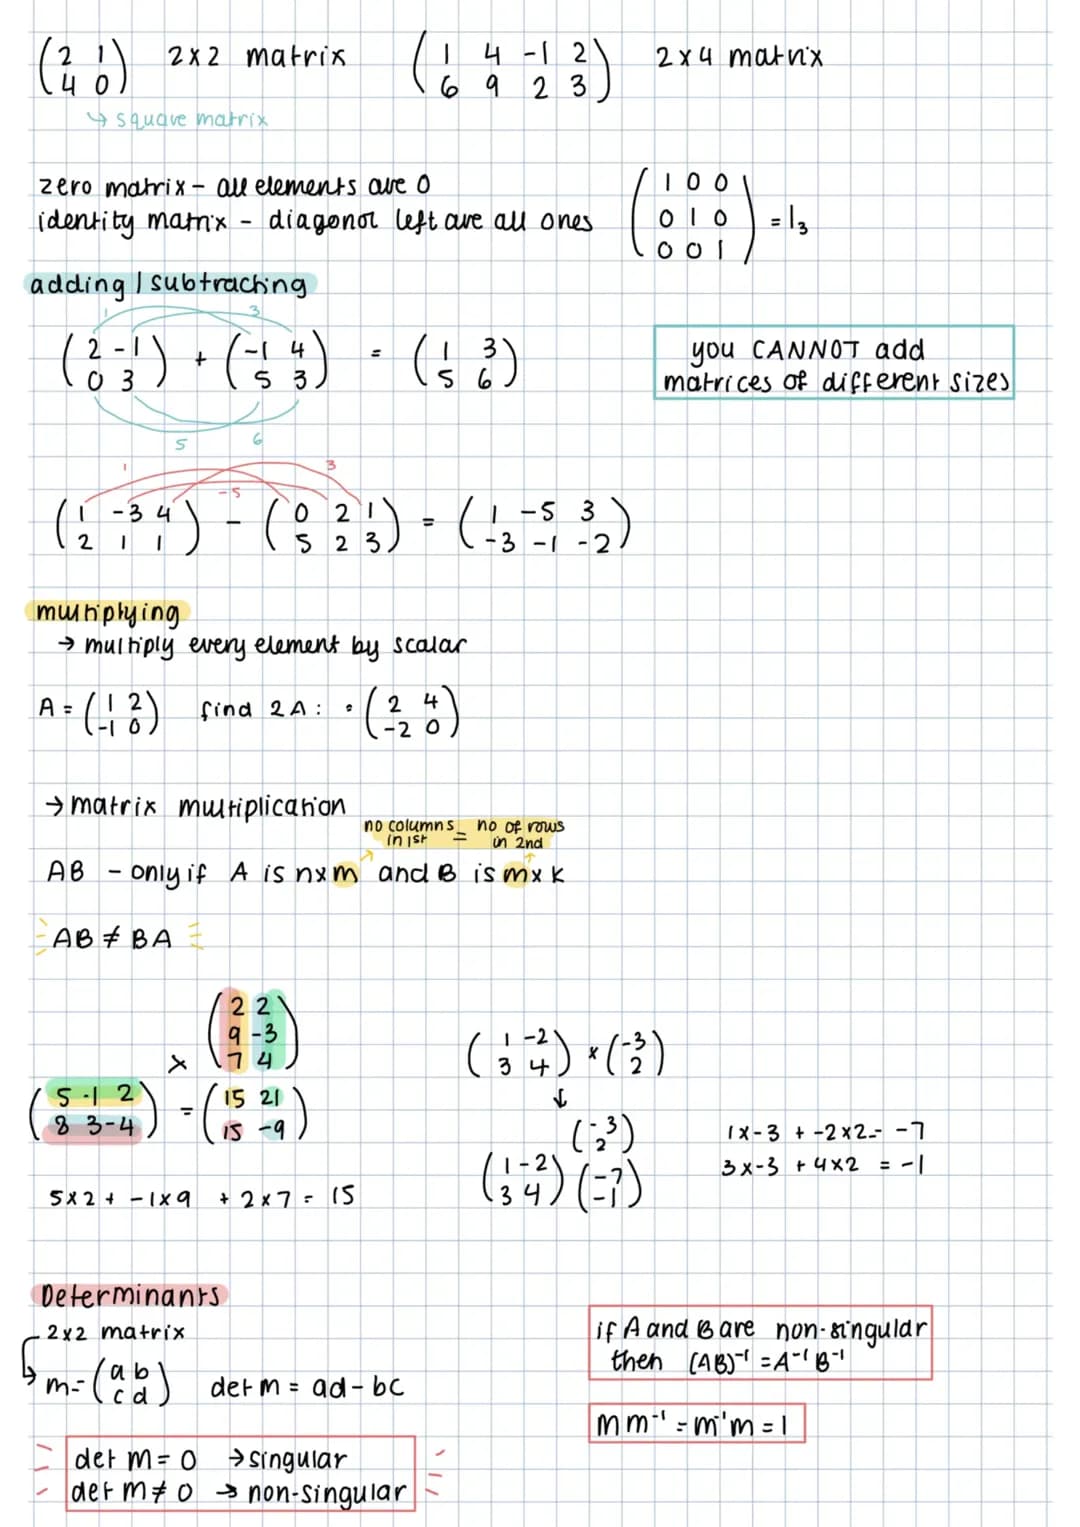 (2 1) 2x2 matrix (1 4 -1 2) 2x4 matrix
(4 0) (6 9 2 3)
↳ square matrix
zero matrix - all elements are 0
identity matrix - diagonal left are all ones
(1 0 0)
(0 1 0) = I3
(0 0 1)
adding / subtracting
1 3
(2 -1) + (-1 4) = (1 3)
(0 3) (5 3) (5 6)
5 6
you CANNOT add
matrices of different sizes
1 -5 3
(1 -3 4) - (0 2 1) = (1 -5 3)
(2 1 1) (5 2 3) (-3 -1 -2)
multiplying
→ multiply every element by scalar
A = (1 2) find 2A: = (2 4)
(-1 0) (-2 0)
→ matrix multiplication
no columns = no of rows
in 1st in 2nd
AB - only if A is nxm and B is mxk
AB ≠ BA
(2 2)
(9 -3)
x (7 4)
(5 -1 2) = (15 21)
(8 3 -4) (15 -9)
5x2 + -1x9 + 2x7 = 15
(1 -2) x (-3)
(3 4) (2)
↓
(-3)
(2)
(1 -2) (-7)
(3 4) (-1)
1x-3 + -2x2 = -7
3x-3 + 4x2 = -1
Determinants
2x2 matrix
m = (a b) det m = ad - bc
(c d)
det m = 0 → singular
det m ≠ 0 → non-singular
if A and B are non-singular
then (AB)⁻¹ = A⁻¹ B⁻¹
mm⁻¹ = m⁻¹m = I